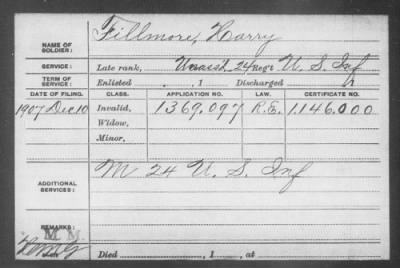 NAME OF SOLDIER: Fillmore, Harry
SERVICE: Late rank, Unassd, 24 Reg't U. S. Inf
TERM OF SERVICE: Enlisted , 1 Discharged , 1
DATE OF FILING. CLASS. APPLICATION NO. LAW. CERTIFICATE NO.
1907 Dec 10 Invalid, 1369.097 R.E. 1.146.000
Widow,
Minor,
ADDITIONAL SERVICES: M 24 U. S. Inf
REMARKS:
Died , 1 , at